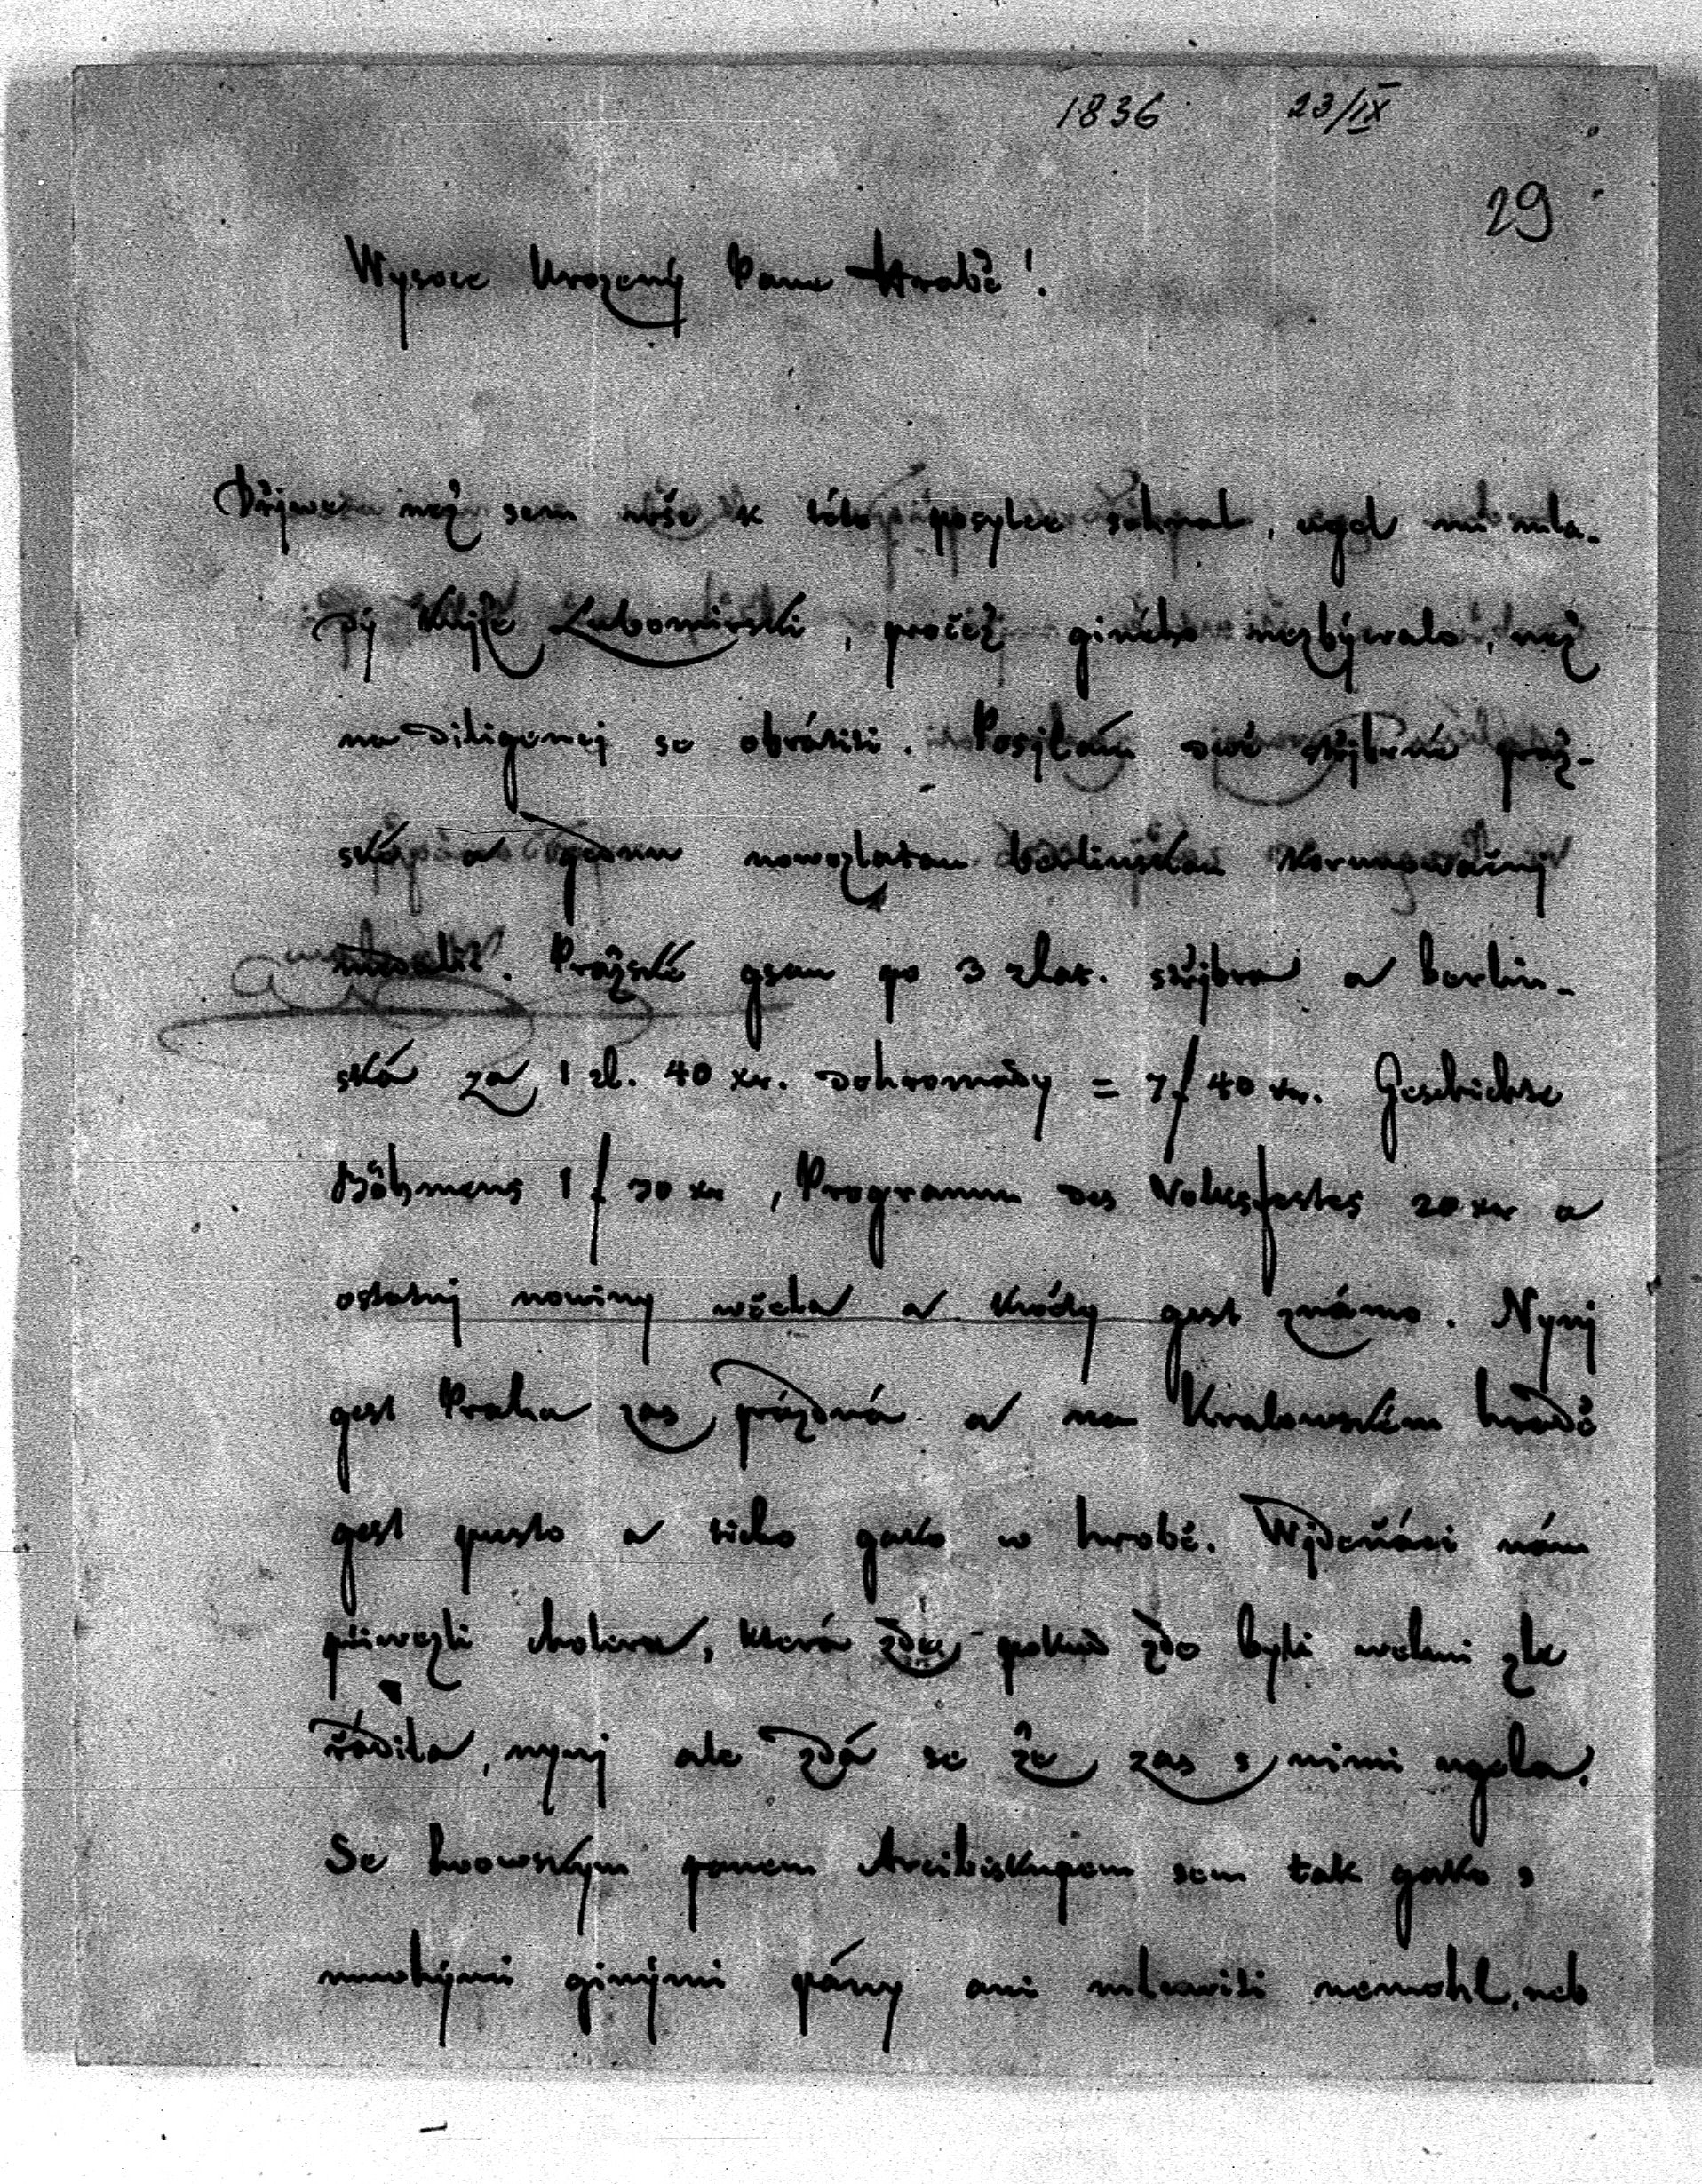 1836 23/IX
29
Wysoce Urozený Pane Hrabě!
Přjwe než sem wše k této posylce sehnal, ugel mi mla-
dý Knjže Lubomirski, pročež giného nezbýwalo, než
na diligencj se obrátiti. Posjlám dwě střjbrné praž-
ské a gednu nowozlatou berlinskou korunowačnj
medalii. Pražské gsau po 3 zlat. střjbra a berlin-
ská za 1 zl. 40 xr. dohromady = 7 f 40 xr. Geschichte
Böhmens 1 f 30 xr, Programm des Volksfestes 20 xr a
ostatnj nowiny wěcla a kwěty gest známo. Nynj
gest Praha zas prázdná a na Kralowském hradě
gest pusto a ticho gako w hrobě. Wjdeňáci nám
přiwezli cholera, která zde pokud zde byli welmi zle
řádila, nynj ale zdá se že zas s nimi ugela.
Se lwowskym panem Arcibiskupem sem tak gako s
mnohými ginými pány ani mluwiti nemohl, neb